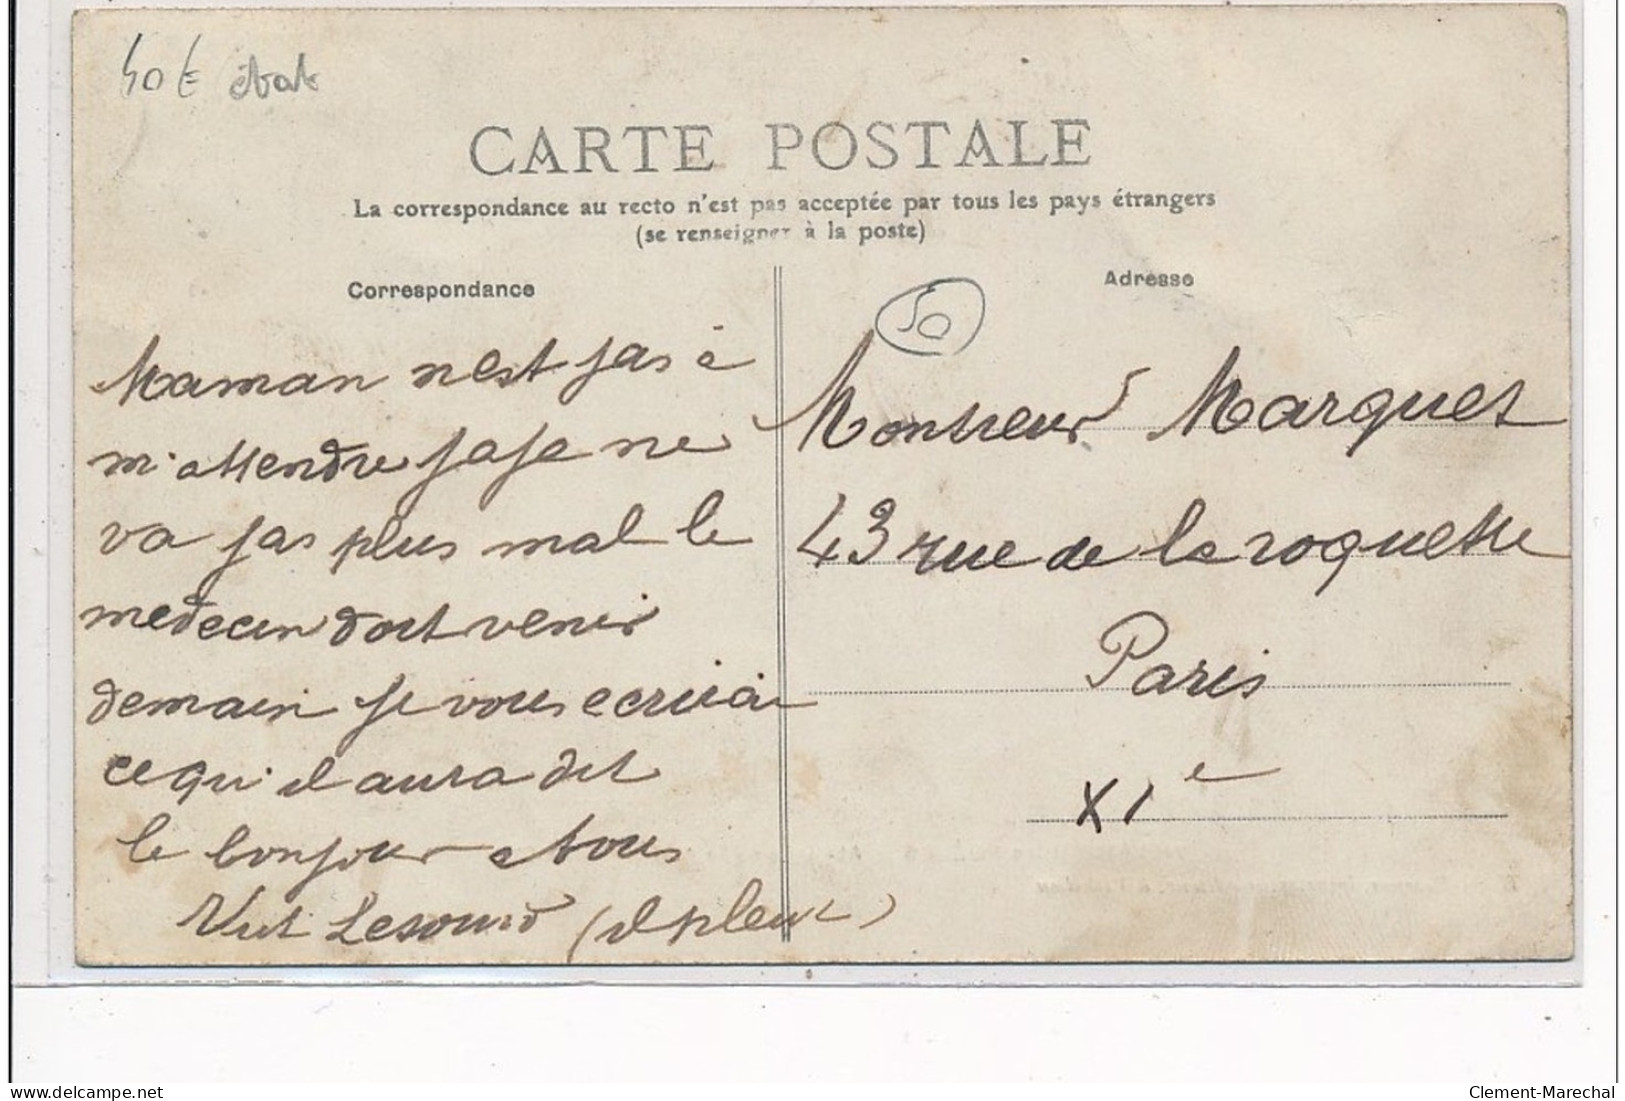 40€ état
CARTE POSTALE
La correspondance au recto n'est pas acceptée par tous les pays étrangers
(se renseigner à la poste)
Correspondance
Adresse
50
Maman n'est pas à
m'attendre papa ne
va pas plus mal le
medecin doit venir
demain je vous ecrirai
ce qu'il aura dit
le bonjour a tous
Lesourd (il pleut)
Monsieur Marques
43 rue de la roquette
Paris
XIe
delcampe.net
Clement-Marechal